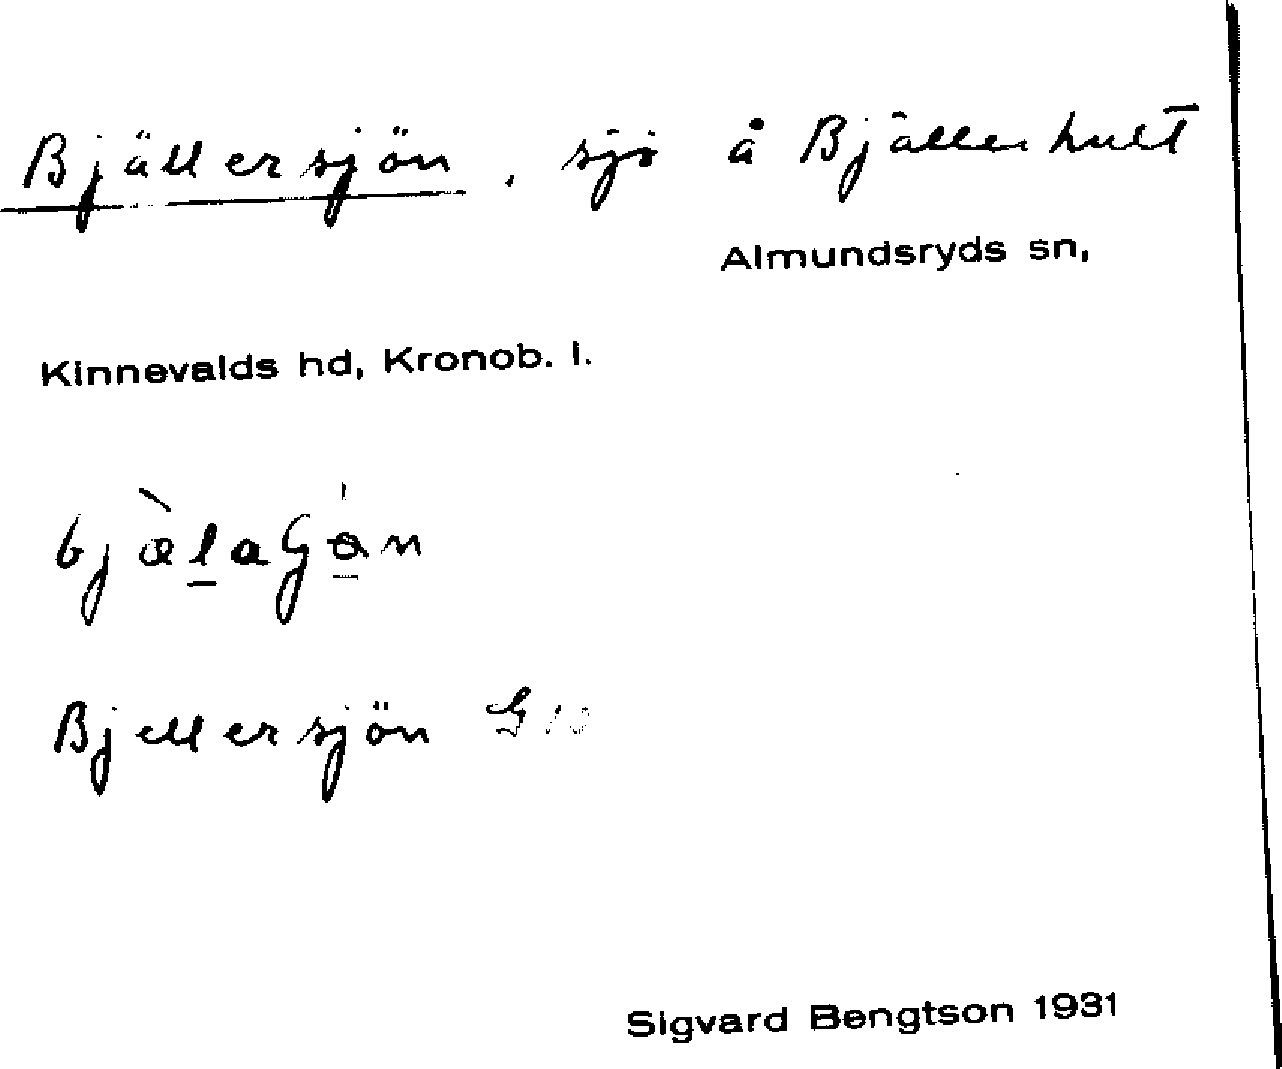 Bjällersjön, sjö å Bjällerhult
Almundsryds sn,
Kinnevalds hd, Kronob. l.
Bjellersjön
Sigvard Bengtson 1931